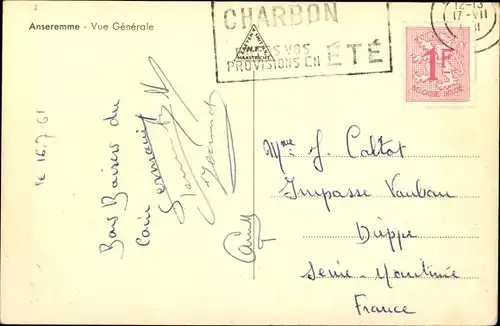 Anseremme - Vue Générale
CHARBON
VOS
PROVISIONS EN ÉTÉ
12-13
17-VII
1F
BELGIQUE-BELGIE
le 16.7.61
Bons Baisers du
coin
Mme J. Caltot
Impasse Vauban
Dieppe
Seine-Maritime
France